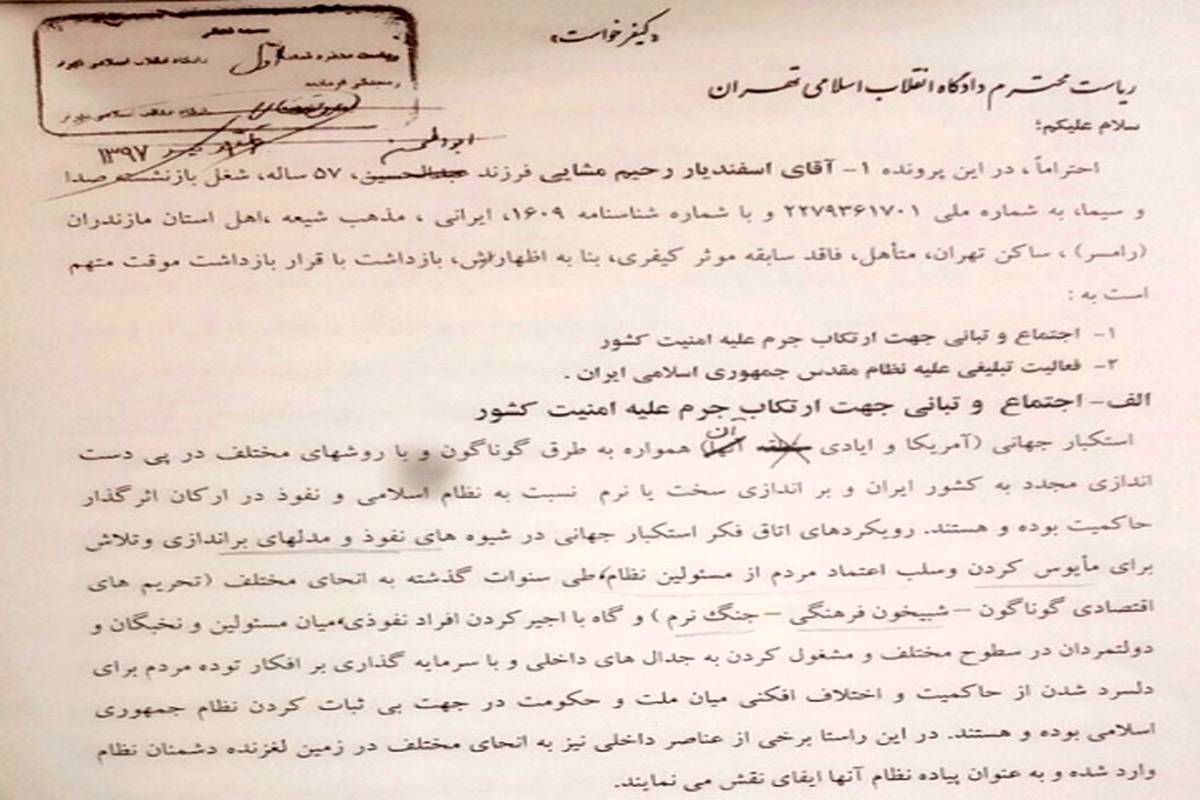 «کیفرخواست»
بسمه تعالی
ریاست محترم شعبه اول دادگاه انقلاب اسلامی تهران
رسیدگی فرمائید
۱۳۹۷
ریاست محترم دادگاه انقلاب اسلامی تهران
سلام علیکم؛
ابوالحسن
احتراماً، در این پرونده ۱- آقای اسفندیار رحیم مشایی فرزند عبدالحسین، ۵۷ ساله، شغل بازنشسته صدا
و سیما، به شماره ملی ۲۲۷۹۳۶۱۷۰۱ و با شماره شناسنامه ۱۶۰۹، ایرانی ، مذهب شیعه ،اهل استان مازندران
(رامسر) ، ساکن تهران، متأهل، فاقد سابقه موثر کیفری، بنا به اظهارش، بازداشت با قرار بازداشت موقت متهم
است به :
۱- اجتماع و تبانی جهت ارتکاب جرم علیه امنیت کشور
۲- فعالیت تبلیغی علیه نظام مقدس جمهوری اسلامی ایران .
الف- اجتماع و تبانی جهت ارتکاب جرم علیه امنیت کشور
استکبار جهانی (آمریکا و ایادی آنها) آن همواره به طرق گوناگون و با روشهای مختلف در پی دست
اندازی مجدد به کشور ایران و بر اندازی سخت یا نرم نسبت به نظام اسلامی و نفوذ در ارکان اثرگذار
حاکمیت بوده و هستند. رویکردهای اتاق فکر استکبار جهانی در شیوه های نفوذ و مدلهای براندازی وتلاش
برای مأیوس کردن وسلب اعتماد مردم از مسئولین نظام،طی سنوات گذشته به انحای مختلف (تحریم های
اقتصادی گوناگون – شبیخون فرهنگی – جنگ نرم ) و گاه با اجیر کردن افراد نفوذی،میان مسئولین و نخبگان و
دولتمردان در سطوح مختلف و مشغول کردن به جدال های داخلی و با سرمایه گذاری بر افکار توده مردم برای
دلسرد شدن از حاکمیت و اختلاف افکنی میان ملت و حکومت در جهت بی ثبات کردن نظام جمهوری
اسلامی بوده و هستند. در این راستا برخی از عناصر داخلی نیز به انحای مختلف در زمین لغزنده دشمنان نظام
وارد شده و به عنوان پیاده نظام آنها ایفای نقش می نمایند.